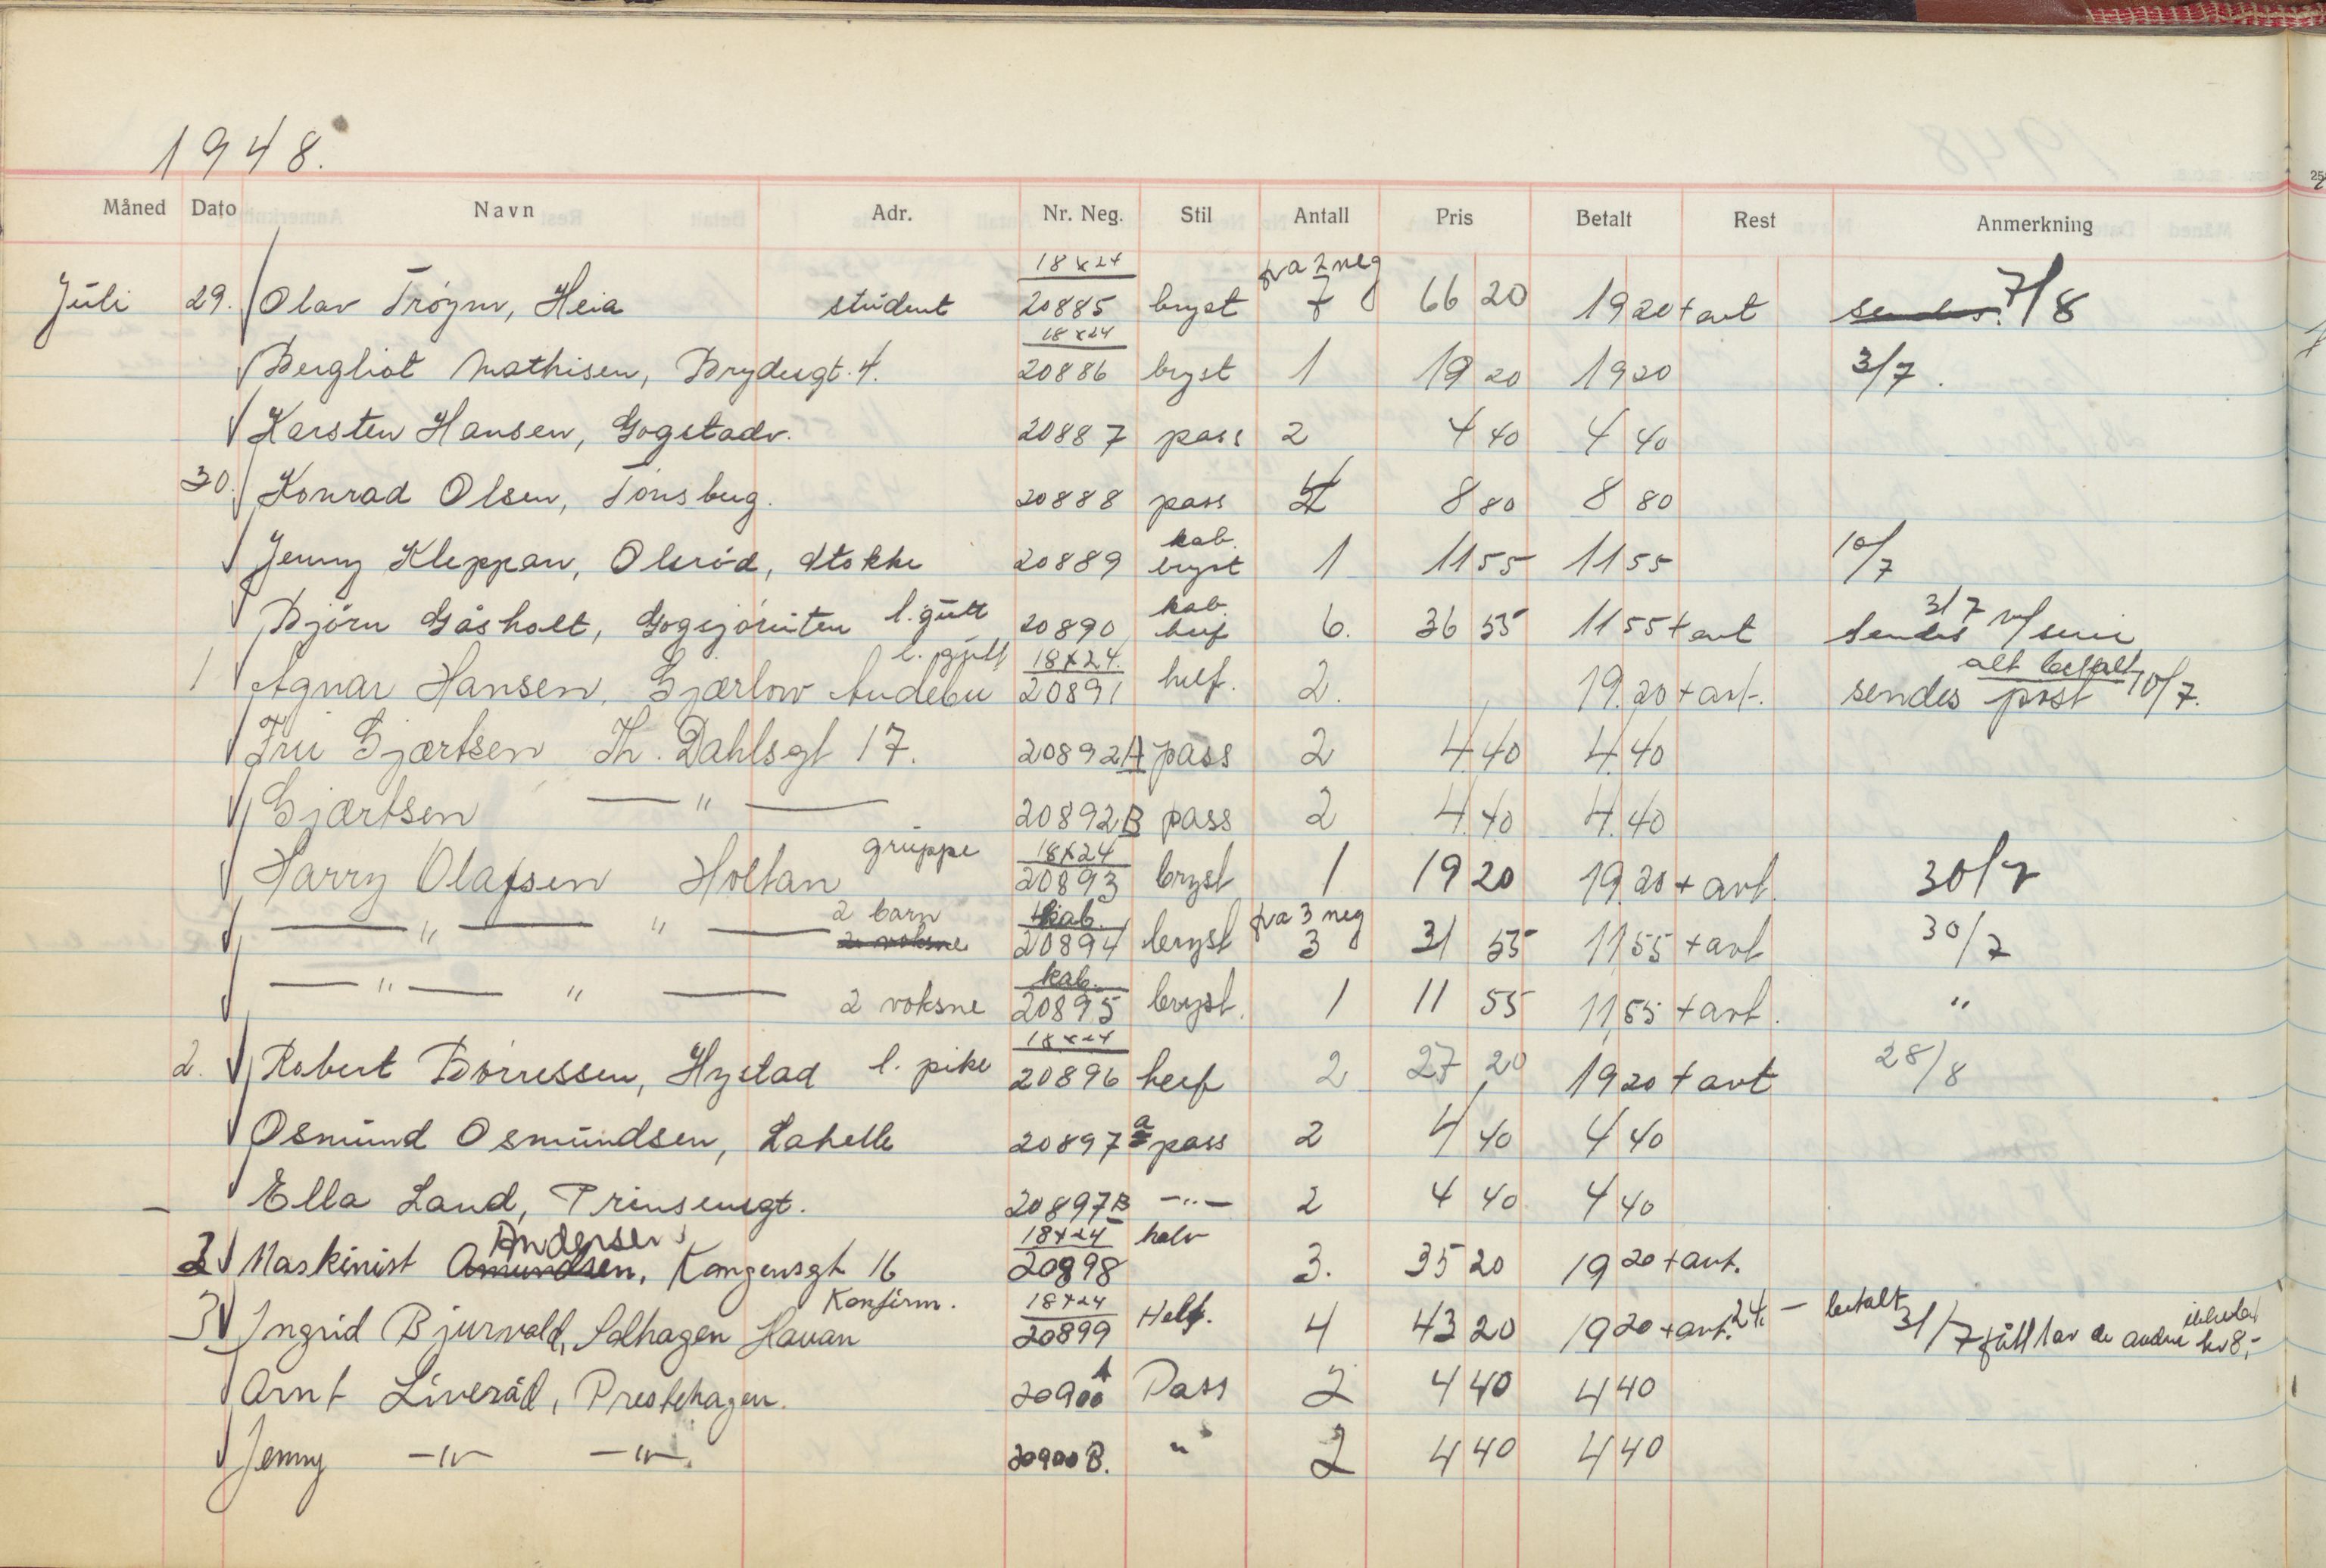 1948.
Måned Dato Navn Adr. Nr. Neg. Stil Antall Pris Betalt Rest Anmerkning
18x24 fra 2 neg
Juli 29. Olav Trøym, Heia student 20885 bryst 7 66 20 19 20 + avt sendes. 7/8
18x24
Bergliot Mathisen, Brydesgt. 4. 20886 bryst 1 19 20 19 20 3/7.
Karsten Hansen, Gogstadv. 20887 pass 2 4 40 4 40
30. Konrad Olsen, Tønsberg. 20888 pass 4 8 80 8 80
kab.
Jenny Kleppan, Olsrød, Stokke 20889 bryst 1 11 55 11 55 10/7
kab. 3/7
Bjørn Gåsholt, l. gutt 20890 helf 6. 36 55 11 55 + avt sendes
l. gutt 18x24. alt betalt
1 Agnar Hansen, Gjærlow Andebu 20891 helf. 2. 19.20 + avt. sendes post 10/7.
Fru Gjærtsen Th. Dahlsgt 17. 20892A pass 2 4.40 4.40
Gjærtsen — " — 20892B pass 2 4.40 4.40
gruppe 18x24
Harry Olafsen Holtan 20893 bryst 1 19 20 19.20 + avt. 30/7
2 barn kab. fra 3 neg
— " — " — 2 voksne 20894 bryst 3 31 55 11 55 + avt 30/7
kab.
— " — " — 2 voksne 20895 bryst. 1 11 55 11,55 + avt. "
18x24
2. Robert Børressen, Hystad l. pike 20896 helf 2 27 20 19 20 + avt 28/8
Osmund Osmundsen, Lahelle 20897 a pass 2 4 40 4 40
– Ella Land, Prinsensgt. 20897B —"— 2 4 40 4 40
Andersen 18x24 halv
3 Maskinist Amundsen, Kongensgt 16 20898 3. 35 20 19 20 + avt.
Konfirm. 18x24
3 Ingrid Bjurvald, Solhagen Havan 20899 Helf. 4 43 20 19 20 + avt. 24. – betalt 31/7 full 1 av de andre kr 8,-
Arnt Liveråd, Prestehagen. 20900 A Pass 2 4 40 4 40
Jenny —"— —"— 20900 B. " 2 4 40 4 40